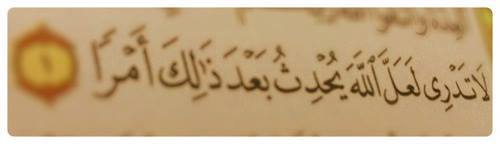 لَا تَدْرِى لَعَلَّ ٱللَّهَ يُحْدِثُ بَعْدَ ذَٰلِكَ أَمْرًا ١